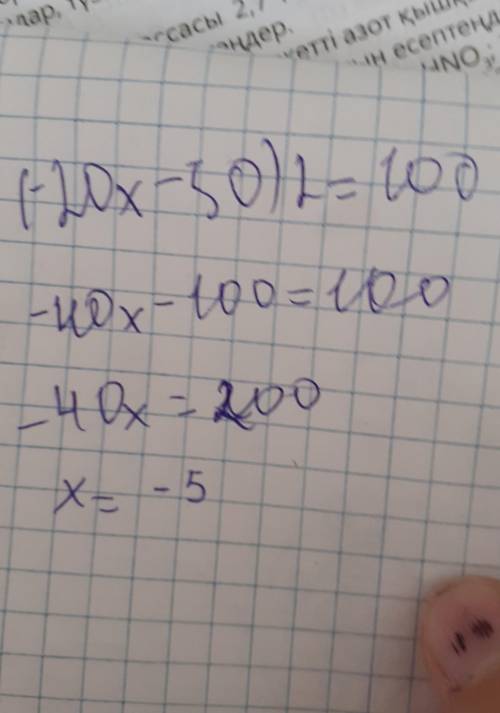 ссасы 2,7
кетті азот қышқ
ын есептеңд
(-20x-50)2=100
-40x-100=100
-40x=200
x=-5